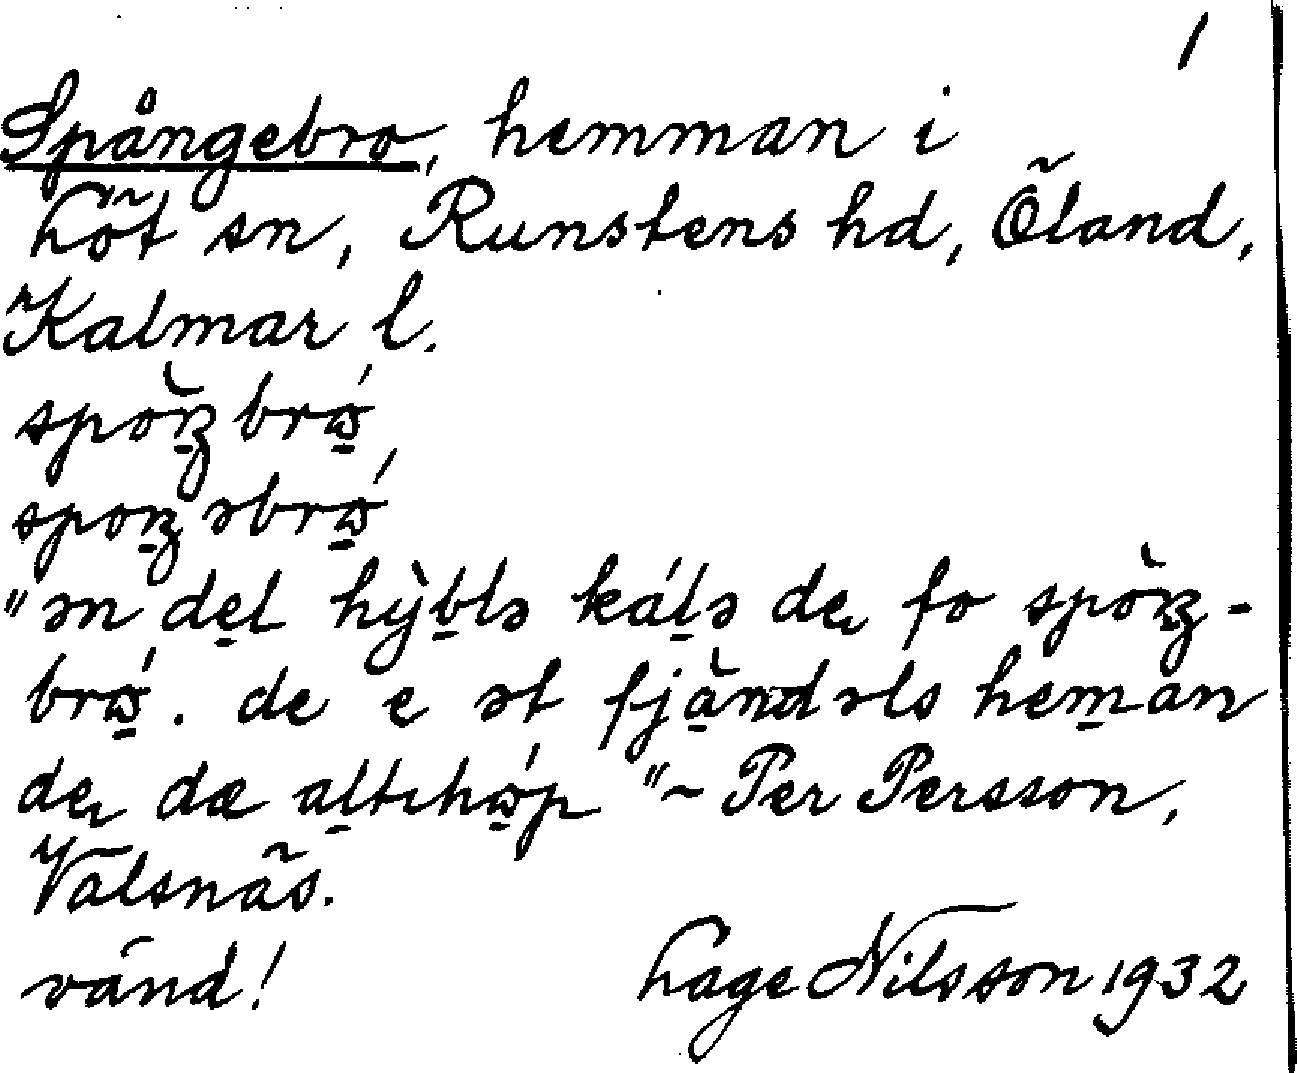 1
Spångebro, hemman i
Löt sn, Runstens hd, Öland,
Kalmar l.
spòŋbrǿ
spoŋəbrǿ
"ən del hỳblə kálə de fo spòŋ-
brǿ. de e ət fjàndəls heman
de dæ altihǿp" ~ Per Persson,
Valsnäs.
vänd! Lage Nilsson 1932